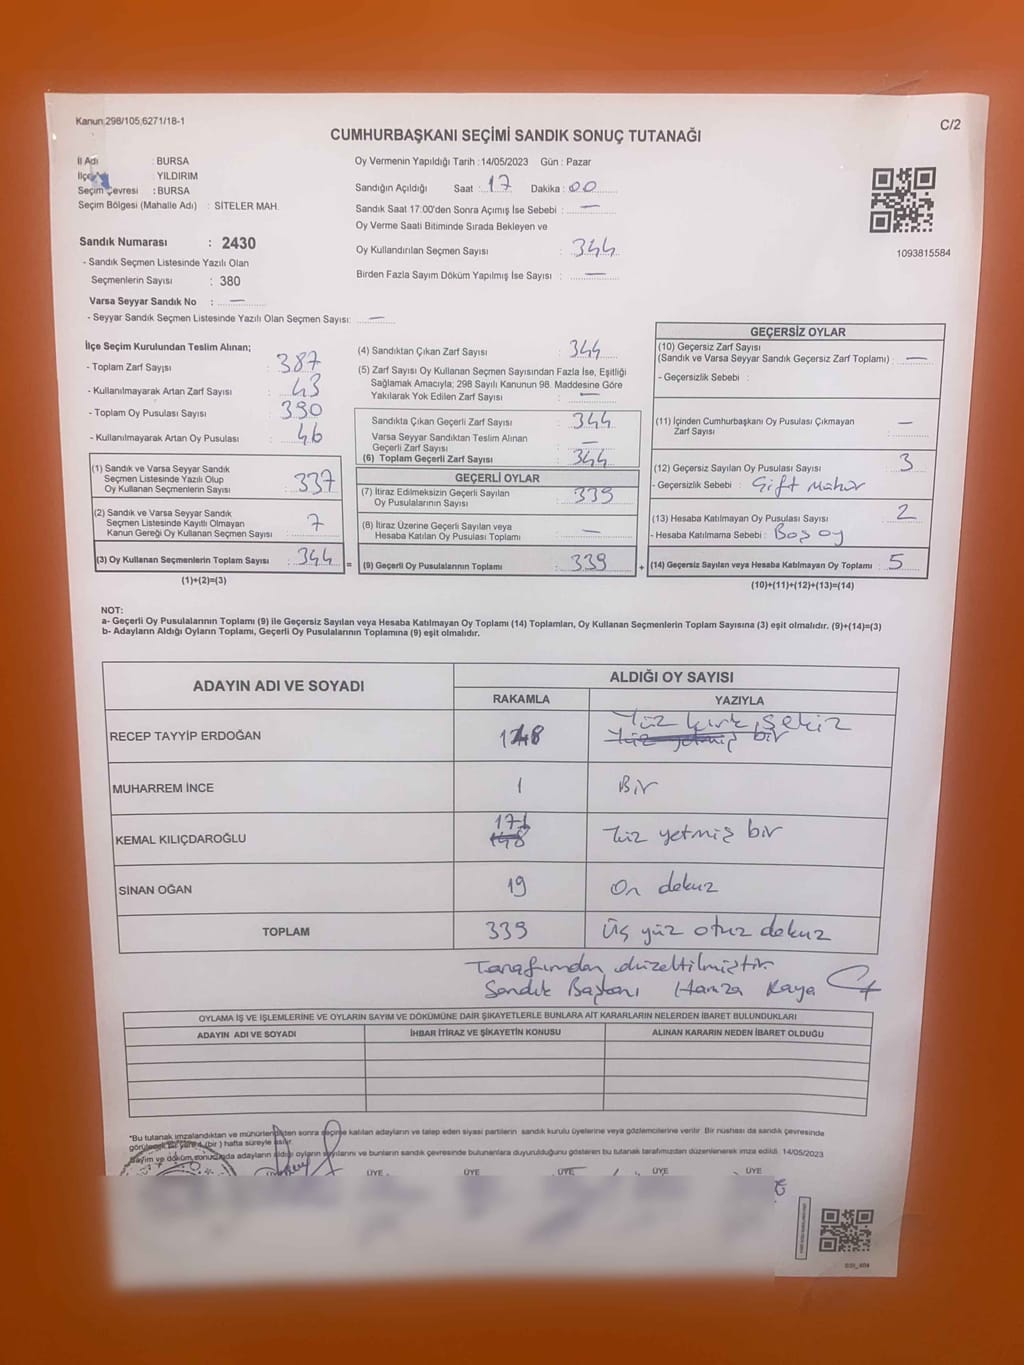 Kanun:298/105,6271/18-1
C/2
CUMHURBAŞKANI SEÇİMİ SANDIK SONUÇ TUTANAĞI
İl Adı : BURSA
İlçe : YILDIRIM
Seçim Çevresi : BURSA
Seçim Bölgesi (Mahalle Adı) : SİTELER MAH.
Sandık Numarası : 2430
- Sandık Seçmen Listesinde Yazılı Olan
Seçmenlerin Sayısı : 380
Varsa Seyyar Sandık No : —
- Seyyar Sandık Seçmen Listesinde Yazılı Olan Seçmen Sayısı: —
Oy Vermenin Yapıldığı Tarih : 14/05/2023 Gün : Pazar
Sandığın Açıldığı Saat : 17 Dakika : 00
Sandık Saat 17:00'den Sonra Açımış İse Sebebi : —
Oy Verme Saati Bitiminde Sırada Bekleyen ve
Oy Kullandırılan Seçmen Sayısı : 344
Birden Fazla Sayım Döküm Yapılmış İse Sayısı : —
1093815584
İlçe Seçim Kurulundan Teslim Alınan;
- Toplam Zarf Sayısı : 387
- Kullanılmayarak Artan Zarf Sayısı : 43
- Toplam Oy Pusulası Sayısı : 390
- Kullanılmayarak Artan Oy Pusulası : 46
(1) Sandık ve Varsa Seyyar Sandık
Seçmen Listesinde Yazılı Olup
Oy Kullanan Seçmenlerin Sayısı : 337
(2) Sandık ve Varsa Seyyar Sandık
Seçmen Listesinde Kayıtlı Olmayan
Kanun Gereği Oy Kullanan Seçmen Sayısı : 7
(3) Oy Kullanan Seçmenlerin Toplam Sayısı : 344
(1)+(2)=(3)
(4) Sandıktan Çıkan Zarf Sayısı : 344
(5) Zarf Sayısı Oy Kullanan Seçmen Sayısından Fazla İse, Eşitliği
Sağlamak Amacıyla; 298 Sayılı Kanunun 98. Maddesine Göre
Yakılarak Yok Edilen Zarf Sayısı : —
Sandıkta Çıkan Geçerli Zarf Sayısı : 344
Varsa Seyyar Sandıktan Teslim Alınan
Geçerli Zarf Sayısı : —
(6) Toplam Geçerli Zarf Sayısı : 344
GEÇERLİ OYLAR
(7) İtiraz Edilmeksizin Geçerli Sayılan
Oy Pusulalarının Sayısı : 339
(8) İtiraz Üzerine Geçerli Sayılan veya
Hesaba Katılan Oy Pusulası Toplamı : —
= (9) Geçerli Oy Pusulalarının Toplamı : 339
GEÇERSİZ OYLAR
(10) Geçersiz Zarf Sayısı
(Sandık ve Varsa Seyyar Sandık Geçersiz Zarf Toplamı) : —
- Geçersizlik Sebebi :
(11) İçinden Cumhurbaşkanı Oy Pusulası Çıkmayan
Zarf Sayısı : —
(12) Geçersiz Sayılan Oy Pusulası Sayısı : 3
- Geçersizlik Sebebi : Çift Mühür
(13) Hesaba Katılmayan Oy Pusulası Sayısı : 2
- Hesaba Katılmama Sebebi : Boş oy
+ (14) Geçersiz Sayılan veya Hesaba Katılmayan Oy Toplamı : 5
(10)+(11)+(12)+(13)=(14)
NOT:
a- Geçerli Oy Pusulalarının Toplamı (9) ile Geçersiz Sayılan veya Hesaba Katılmayan Oy Toplamı (14) Toplamları, Oy Kullanan Seçmenlerin Toplam Sayısına (3) eşit olmalıdır. (9)+(14)=(3)
b- Adayların Aldığı Oyların Toplamı, Geçerli Oy Pusulalarının Toplamına (9) eşit olmalıdır.
ADAYIN ADI VE SOYADI
ALDIĞI OY SAYISI
RAKAMLA YAZIYLA
RECEP TAYYİP ERDOĞAN 148 Yüz kırk sekiz
Yüz yetmiş bir
MUHARREM İNCE 1 Bir
KEMAL KILIÇDAROĞLU 171 Yüz yetmiş bir
148
SİNAN OĞAN 19 On dokuz
TOPLAM 339 Üç yüz otuz dokuz
Tarafımdan düzeltilmiştir.
Sandık Başkanı Hamza Kaya
OYLAMA İŞ VE İŞLEMLERİNE VE OYLARIN SAYIM VE DÖKÜMÜNE DAİR ŞİKAYETLERLE BUNLARA AİT KARARLARIN NELERDEN İBARET BULUNDUKLARI
ADAYIN ADI VE SOYADI
İHBAR İTİRAZ VE ŞİKAYETİN KONUSU
ALINAN KARARIN NEDEN İBARET OLDUĞU
*Bu tutanak imzalandıktan ve mühürlendikten sonra seçime katılan adayların ve talep eden siyasi partilerin sandık kurulu üyelerine veya gözlemcilerine verilir. Bir nüshası da sandık çevresinde
görülecek bir yere 1 (bir) hafta süreyle asılır.
Sayım ve döküm sonucunda adayların aldığı oyların sayılarını ve bunların sandık çevresinde bulunanlara duyurulduğunu gösteren bu tutanak tarafımızdan düzenlenerek imza edildi. 14/05/2023
ÜYE ÜYE ÜYE ÜYE ÜYE